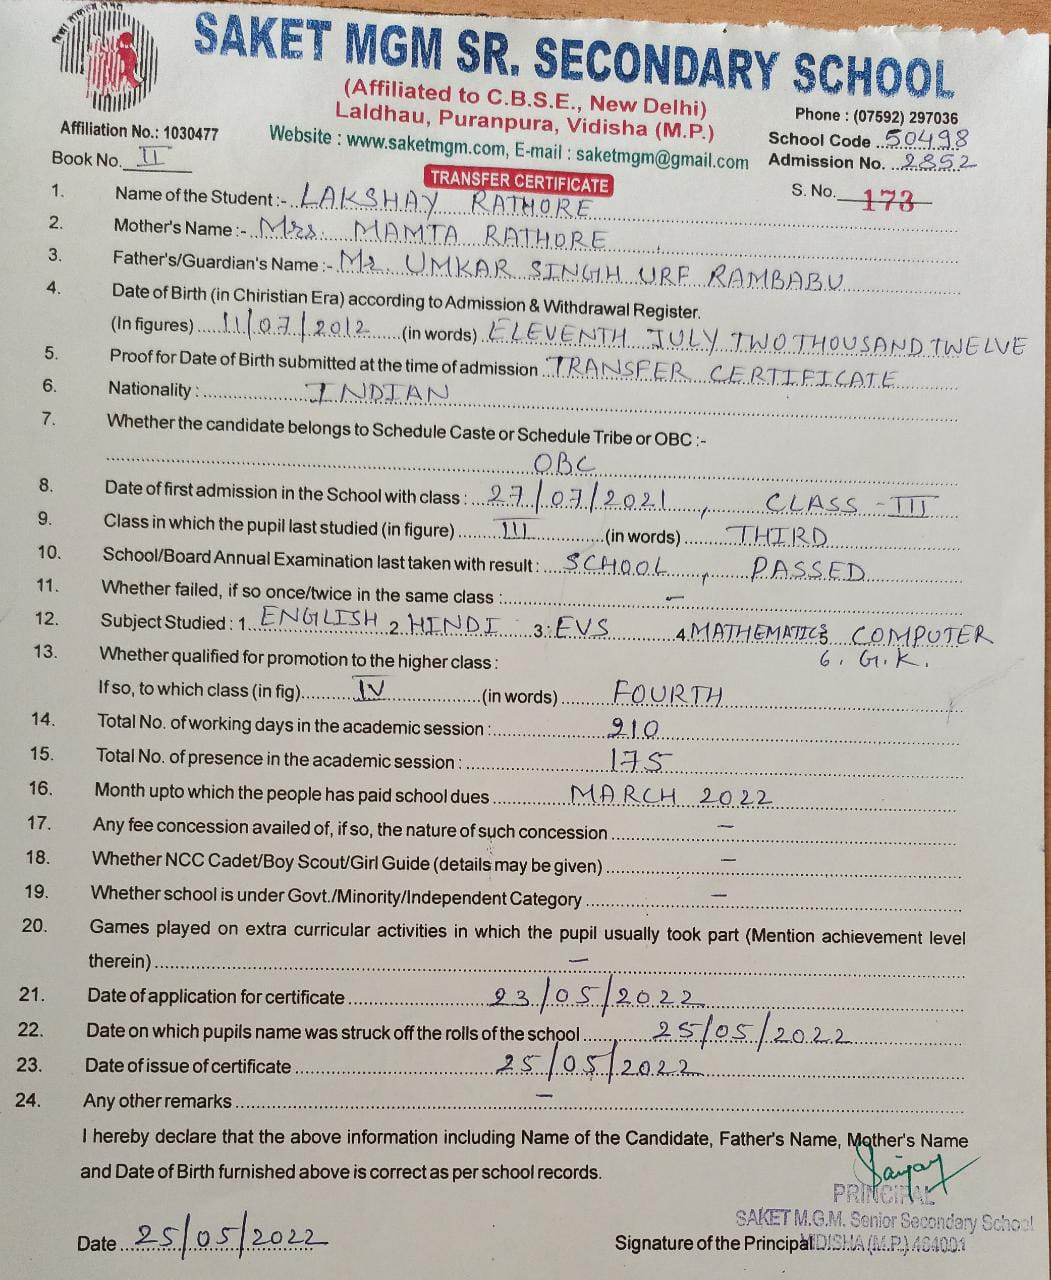 SAKET MGM SR. SECONDARY SCHOOL
(Affiliated to C.B.S.E., New Delhi)
Laldhau, Puranpura, Vidisha (M.P.)
Phone : (07592) 297036
Affiliation No.: 1030477
Website : www.saketmgm.com, E-mail : saketmgm@gmail.com
School Code 50498
Book No. II
Admission No. 2852
TRANSFER CERTIFICATE
S. No. 173
1. Name of the Student :- LAKSHAY RATHORE
2. Mother's Name :- Mrs. MAMTA RATHORE
3. Father's/Guardian's Name :- Mr. UMKAR SINGH URF RAMBABU
4. Date of Birth (in Chiristian Era) according to Admission & Withdrawal Register.
(In figures) 11/07/2012 (in words) ELEVENTH JULY TWO THOUSAND TWELVE
5. Proof for Date of Birth submitted at the time of admission TRANSFER CERTIFICATE
6. Nationality : INDIAN
7. Whether the candidate belongs to Schedule Caste or Schedule Tribe or OBC :-
OBC
8. Date of first admission in the School with class : 27/07/2021, CLASS - III
9. Class in which the pupil last studied (in figure) III (in words) THIRD
10. School/Board Annual Examination last taken with result : SCHOOL, PASSED
11. Whether failed, if so once/twice in the same class : -
12. Subject Studied : 1. ENGLISH 2. HINDI 3. EVS 4. MATHEMATICS 5. COMPUTER
6. G.K.
13. Whether qualified for promotion to the higher class :
If so, to which class (in fig) IV (in words) FOURTH
14. Total No. of working days in the academic session : 210
15. Total No. of presence in the academic session : 175
16. Month upto which the people has paid school dues MARCH 2022
17. Any fee concession availed of, if so, the nature of such concession -
18. Whether NCC Cadet/Boy Scout/Girl Guide (details may be given) -
19. Whether school is under Govt./Minority/Independent Category -
20. Games played on extra curricular activities in which the pupil usually took part (Mention achievement level
therein) -
21. Date of application for certificate 23/05/2022
22. Date on which pupils name was struck off the rolls of the school 25/05/2022
23. Date of issue of certificate 25/05/2022
24. Any other remarks -
I hereby declare that the above information including Name of the Candidate, Father's Name, Mother's Name
and Date of Birth furnished above is correct as per school records.
PRINCIPAL
SAKET M.G.M. Senior Secondary School
Date 25/05/2022
Signature of the Principal VIDISHA (M.P.) 464001